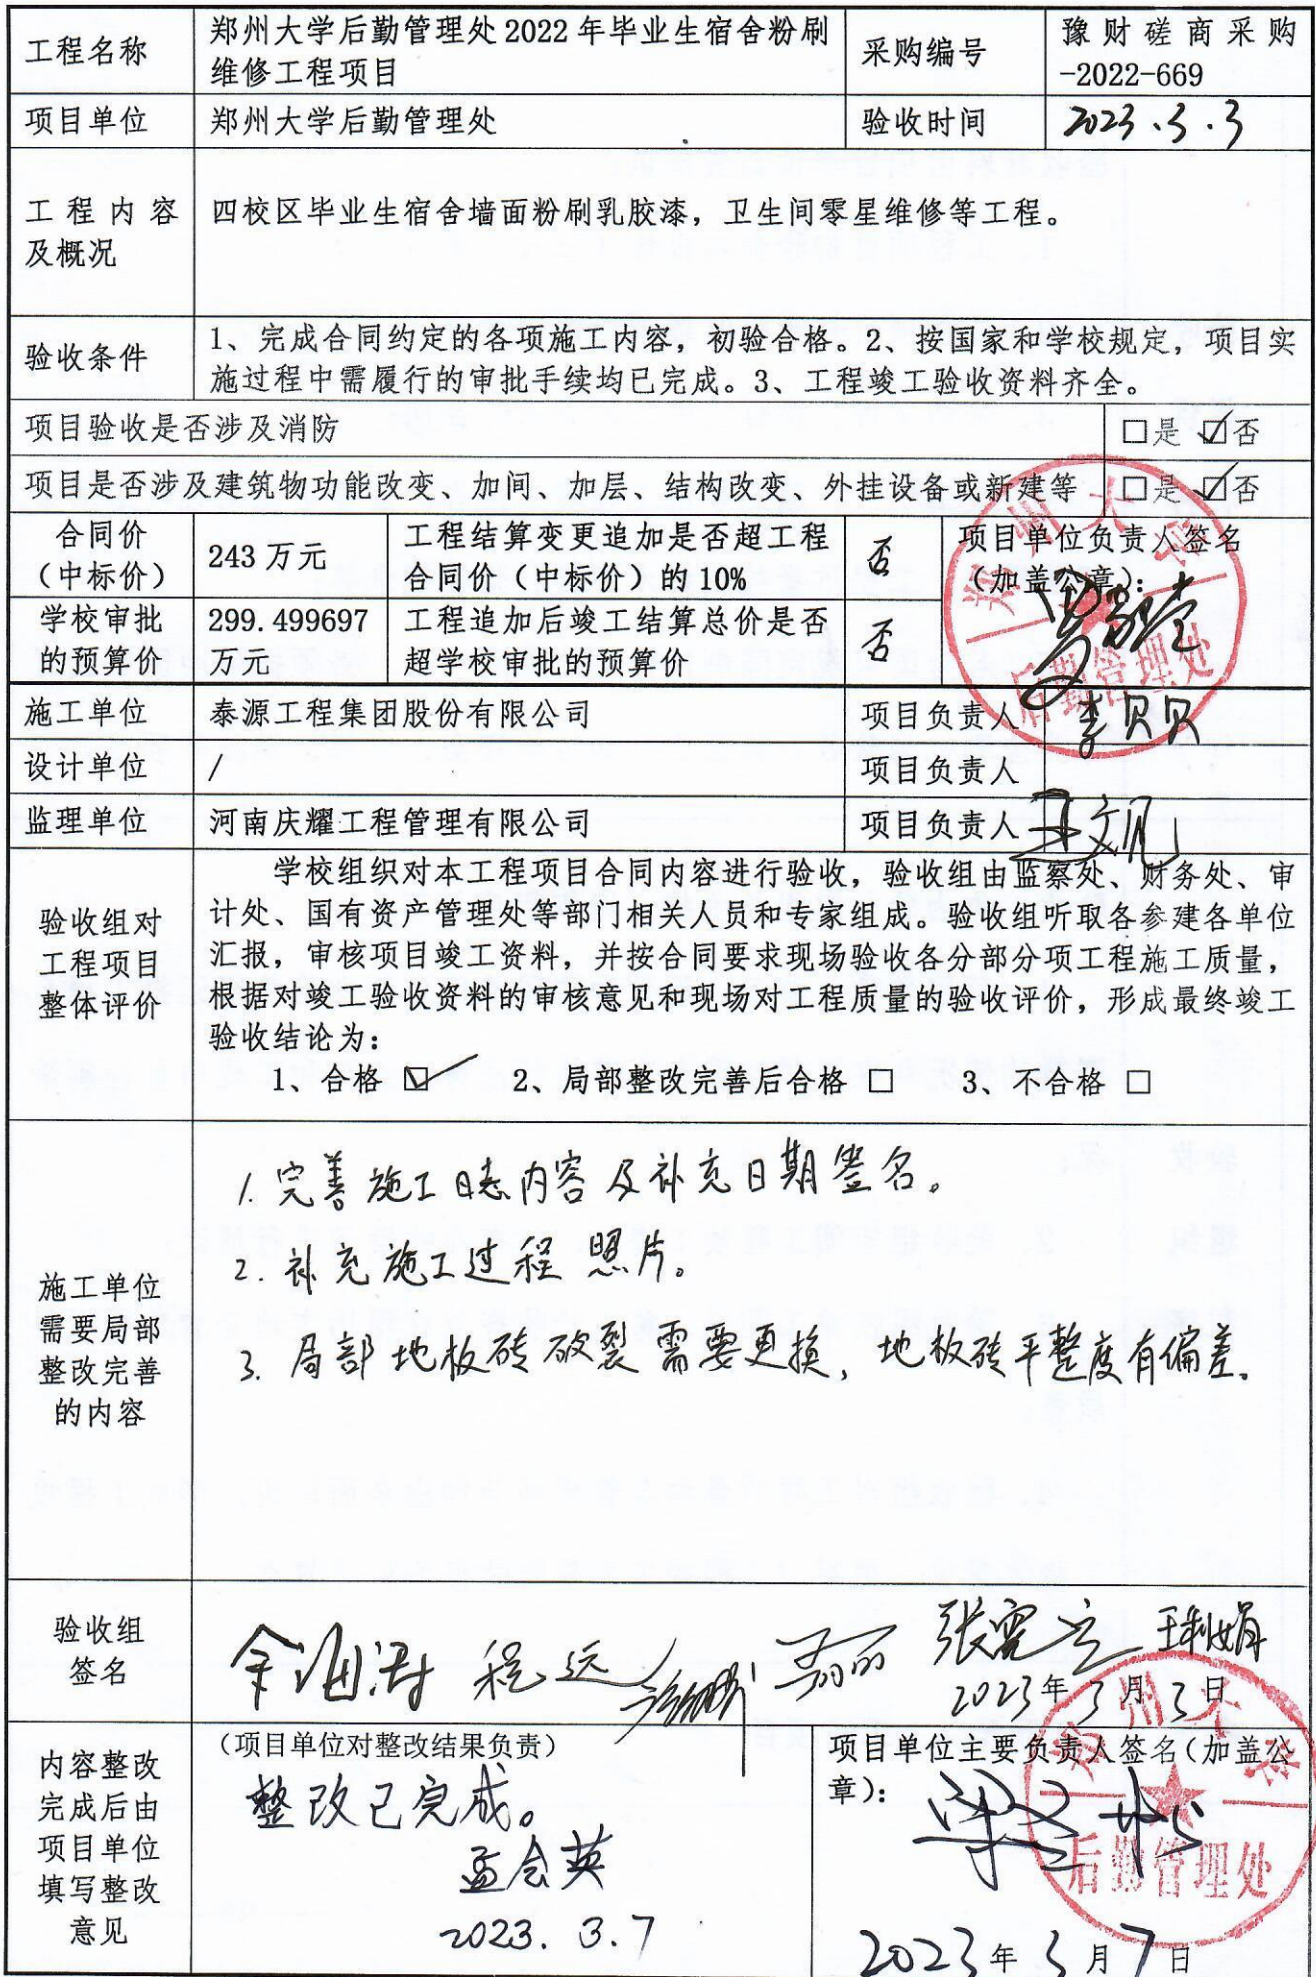 工程名称
郑州大学后勤管理处 2022 年毕业生宿舍粉刷
维修工程项目
采购编号
豫财磋商采购
-2022-669
项目单位
郑州大学后勤管理处
验收时间
2023.3.3
工程内容
及概况
四校区毕业生宿舍墙面粉刷乳胶漆，卫生间零星维修等工程。
验收条件
1、完成合同约定的各项施工内容，初验合格。2、按国家和学校规定，项目实
施过程中需履行的审批手续均已完成。3、工程竣工验收资料齐全。
项目验收是否涉及消防
□是 ☑否
项目是否涉及建筑物功能改变、加间、加层、结构改变、外挂设备或新建等
□是 ☑否
合同价
（中标价）
243 万元
工程结算变更追加是否超工程
合同价（中标价）的 10%
否
项目单位负责人签名
（加盖公章）：
学校审批
的预算价
299.499697
万元
工程追加后竣工结算总价是否
超学校审批的预算价
否
郑州大学
后勤管理处
施工单位
泰源工程集团股份有限公司
项目负责人
李贝贝
设计单位
/
项目负责人
监理单位
河南庆耀工程管理有限公司
项目负责人
王文凡
验收组对
工程项目
整体评价
学校组织对本工程项目合同内容进行验收，验收组由监察处、财务处、审
计处、国有资产管理处等部门相关人员和专家组成。验收组听取各参建各单位
汇报，审核项目竣工资料，并按合同要求现场验收各分部分项工程施工质量，
根据对竣工验收资料的审核意见和现场对工程质量的验收评价，形成最终竣工
验收结论为：
1、合格 ☑ 2、局部整改完善后合格 □ 3、不合格 □
施工单位
需要局部
整改完善
的内容
1. 完善施工日志内容及补充日期签名。
2. 补充施工过程照片。
3. 局部地板砖破裂需要更换，地板砖平整度有偏差。
验收组
签名
程远
王利娟
2023年3月3日
内容整改
完成后由
项目单位
填写整改
意见
（项目单位对整改结果负责）
整改已完成。
孟会英
2023.3.7
项目单位主要负责人签名（加盖公
章）：
郑州大学
后勤管理处
2023年3月7日